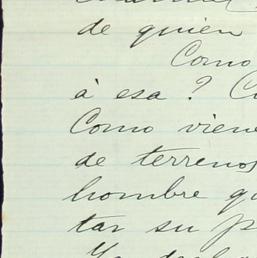 de quien
Como
à esa ?
Como viene
de terrenos
hombre
tar su
Ya